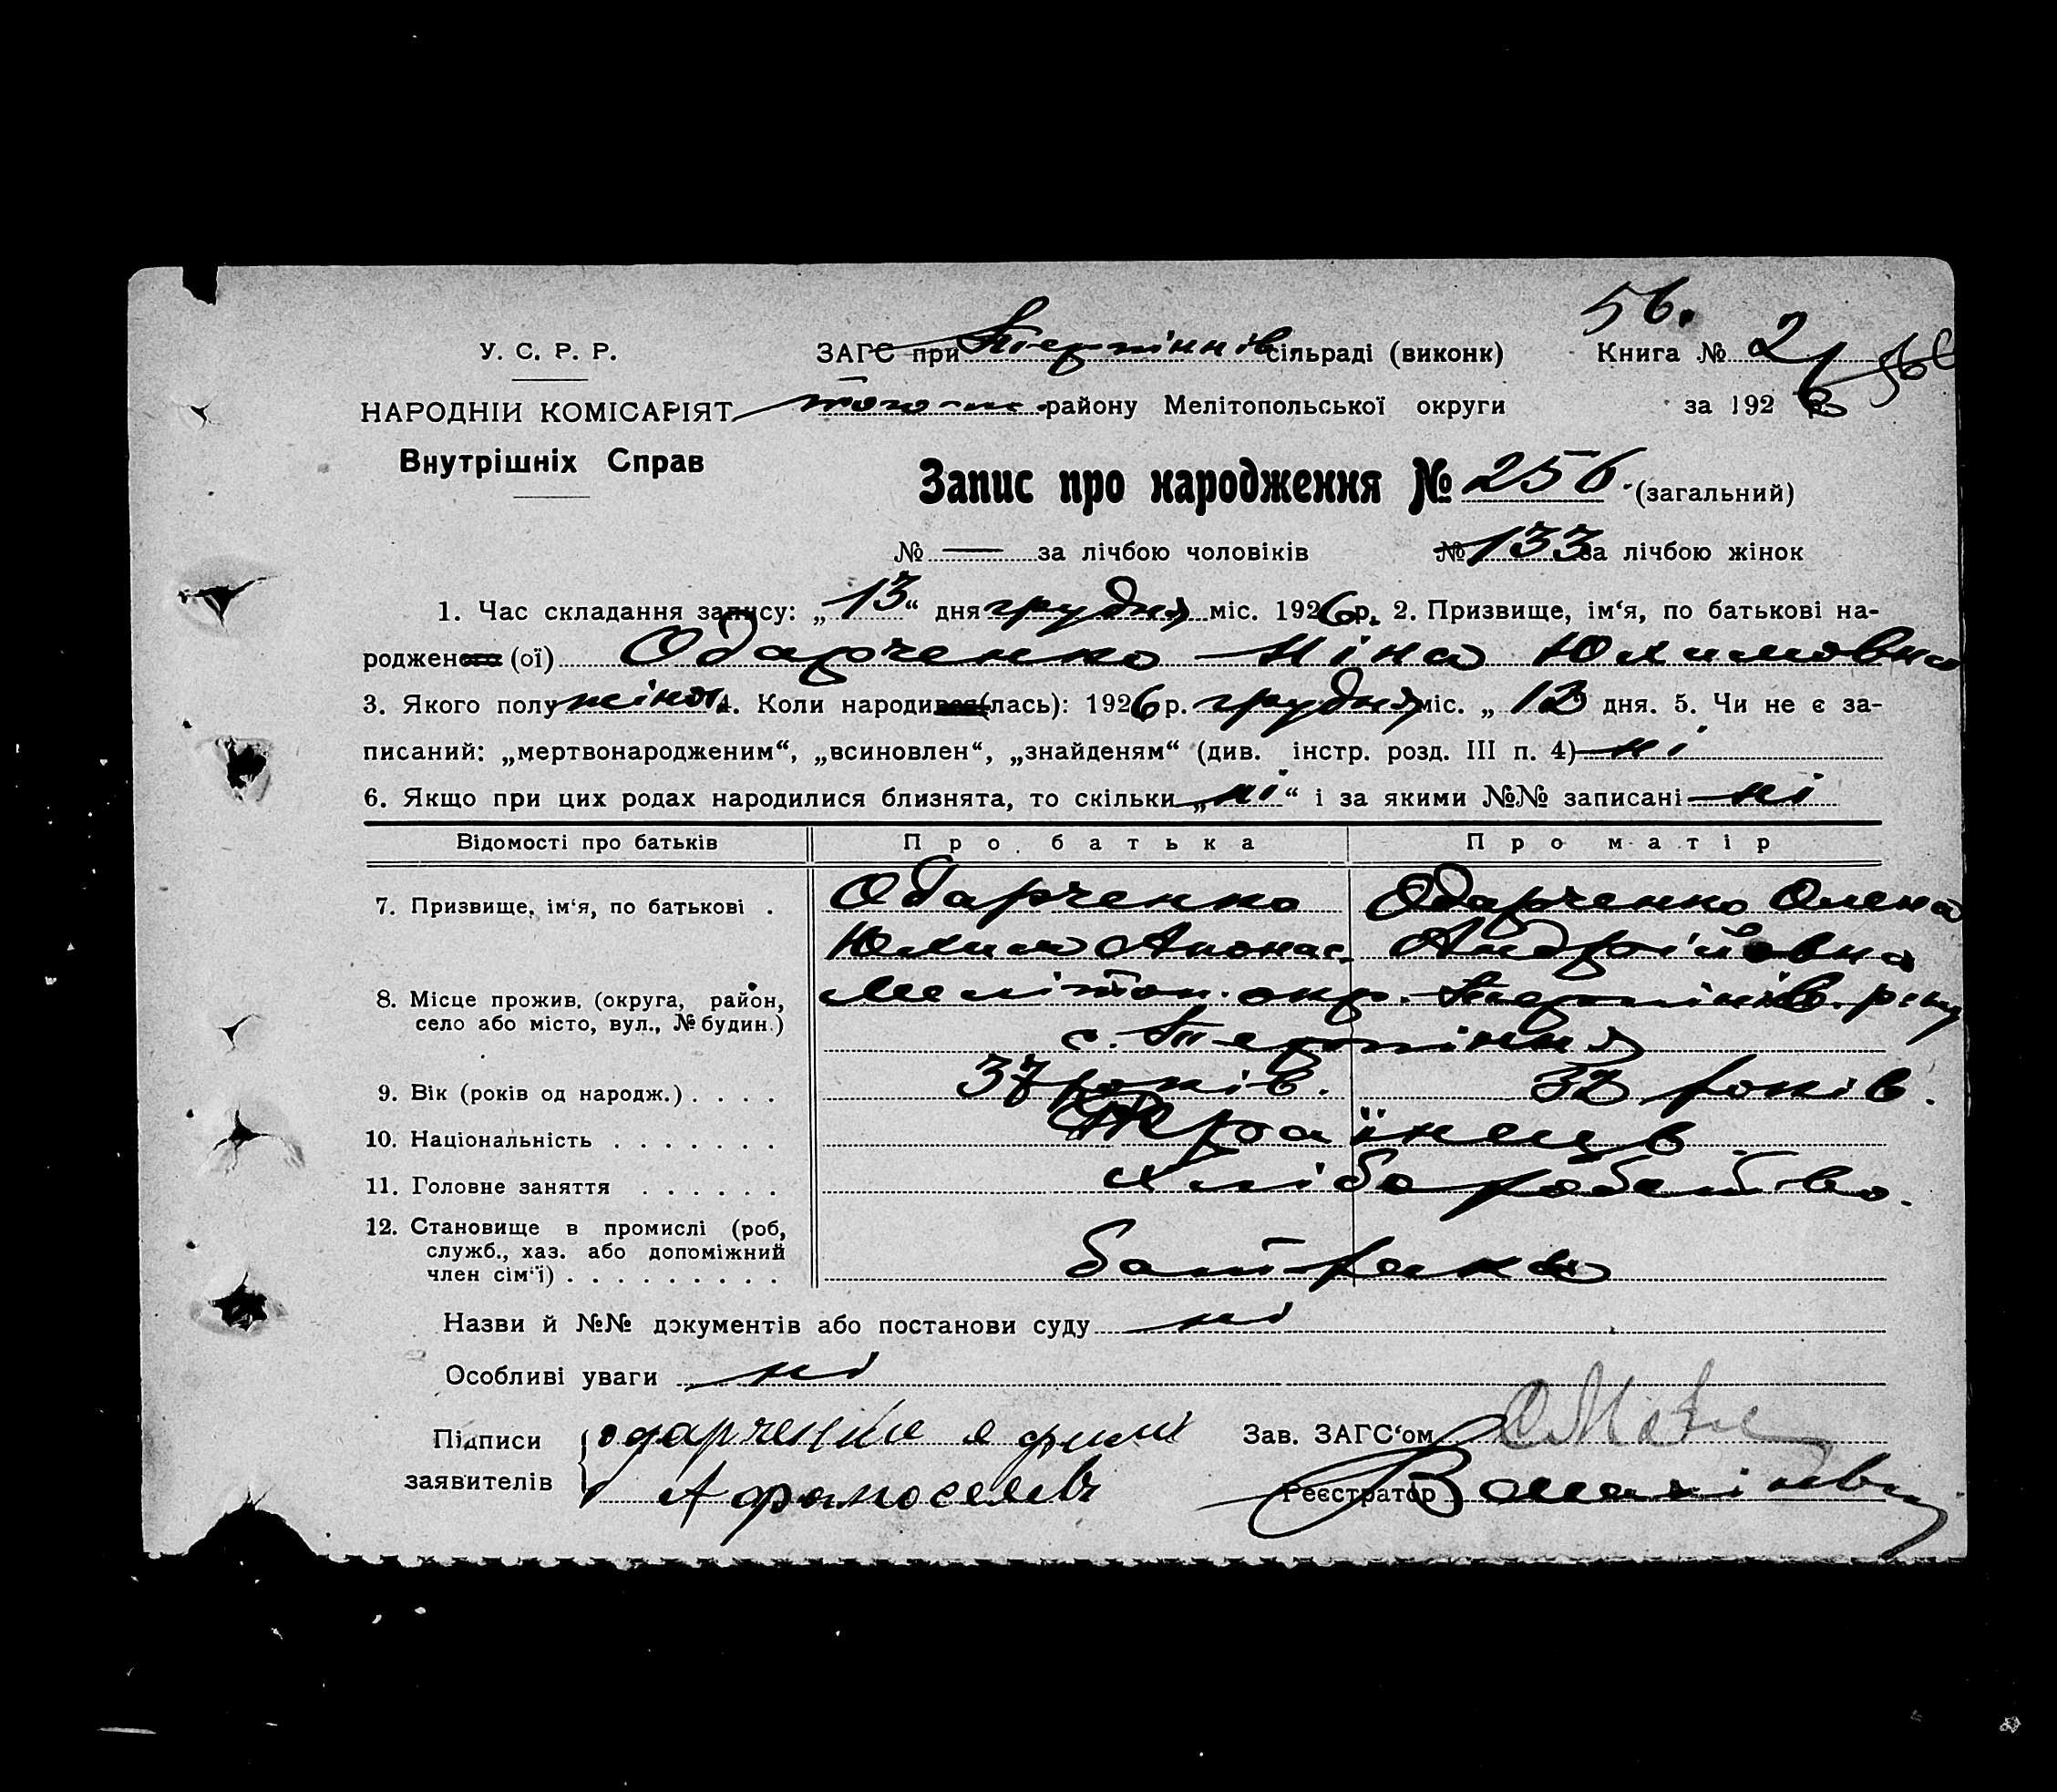 56.
У. С. Р. Р. ЗАГС при Терпіннів сільраді (виконк) Книга № 2
НАРОДНІЙ КОМІСАРІЯТ того-ж району Мелітопольської округи за 1926
Внутрішніх Справ
Запис про народження № 256. (загальний)
№ — за лічбою чоловіків № 133 за лічбою жінок
1. Час складання запису: „13“ дня грудня міс. 1926 р. 2. Призвище, ім‘я, по батькові на-
родженого (ої) Одарченко Ніна Юхимовна
3. Якого полу жіноч. 4. Коли народився (лась): 1926 р. грудня міс. „ 12 дня. 5. Чи не є за-
писаний: „мертвонародженим“, „всиновлен“, „знайденям“ (див. інстр. розд. III п. 4) ні
6. Якщо при цих родах народилися близнята, то скільки „ні“ і за якими №№ записані ні
Відомості про батьків Про батька Про матір
7. Призвище, ім‘я, по батькові . Одарченко Одарченко Олена
Юхим Апонас. Андрійовна
8. Місце прожив. (округа, район, Мелітоп. окр. Терпіннів. р-ну
село або місто, вул., № будин.) с. Терпіння
9. Вік (років од народж.) . . . . 37 років. 32 років.
10. Національність . . . . . . . Країнець
11. Головне заняття . . . . . . Хліборобство.
12. Становище в промислі (роб,
служб., хаз. або допоміжний
член сім‘ї) . . . . . . . . . батрака
Назви й №№ документів або постанови суду ні
Особливі уваги ні
Підписи одарченко Зав. ЗАГС‘ом
заявителів Реєстратор